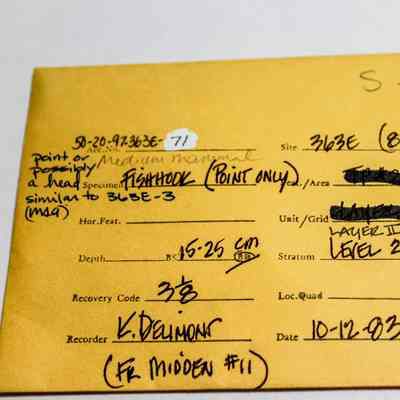 S
50-20-97-363E-71
Acc. No.
Site 363E (8
Medium Mammal
point or
possibly
a head
similar to 363E-3
(M29)
Specimen FISHHOOK (POINT ONLY)
/Area
Hor.Feat.
Unit/Grid
LAYER II
Depth 15-25 cm
Stratum LEVEL 2
Recovery Code 3 1/8
Loc.Quad
Recorder K. DELIMONT
Date 10-12-83
(FR MIDDEN #11)